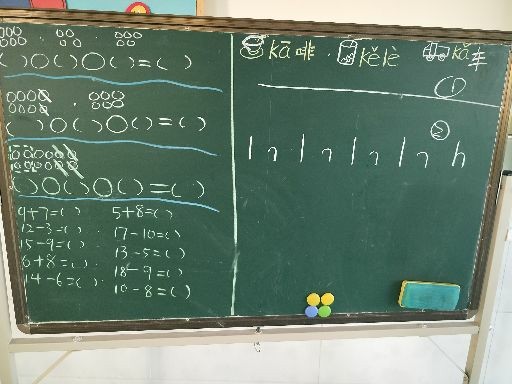 ( )○( )○( )=( )
( )○( )○( )=( )
( )○( )○( )=( )
9+7=( ) 5+8=( )
12-3=( ) 17-10=( )
15-9=( ) 13-5=( )
6+8=( ) 18-9=( )
14-6=( ) 10-8=( )
kā 啡 kělè kǎ车
①
②